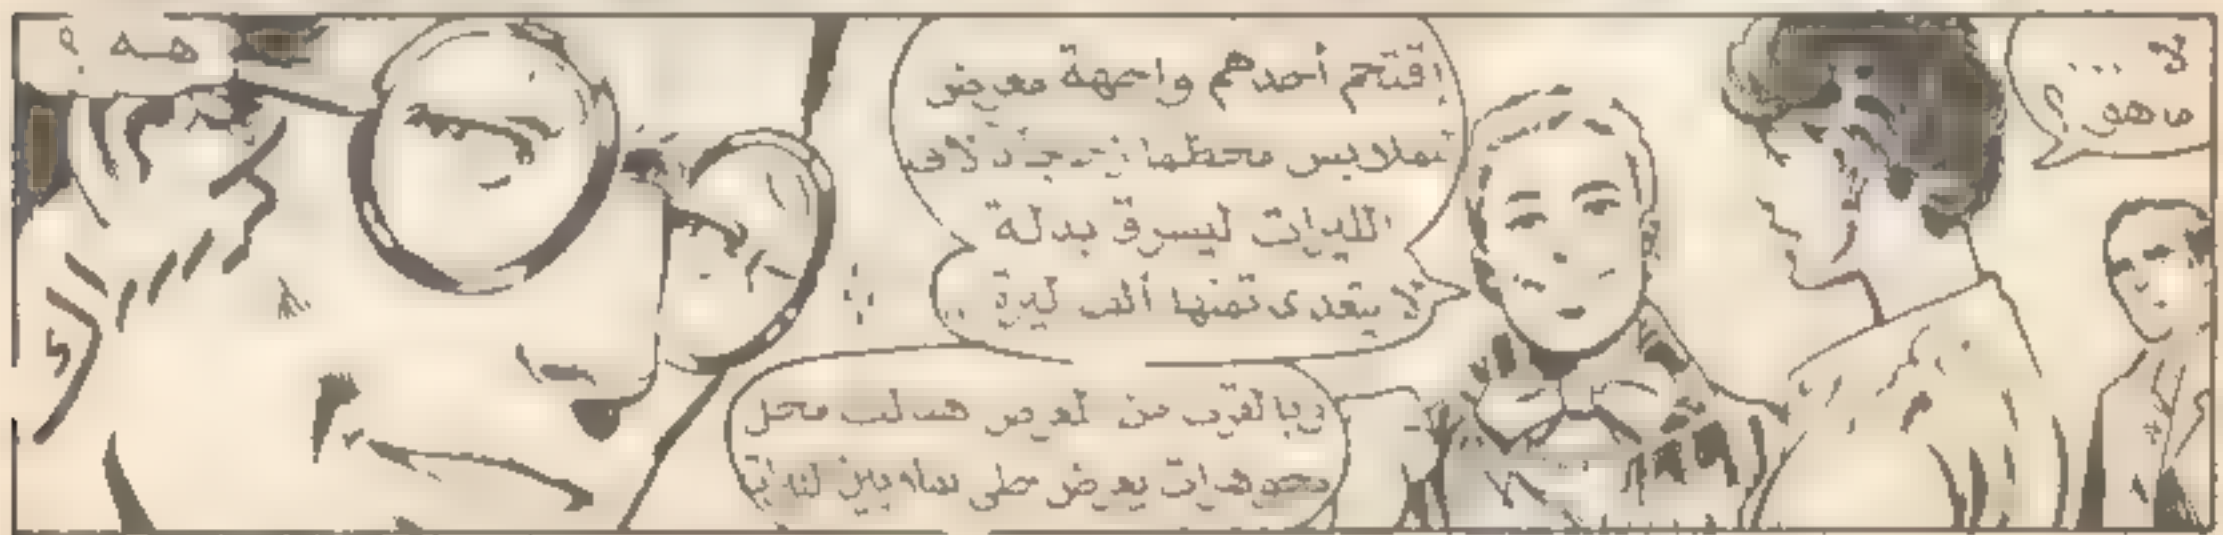 لا ...
ما هو ؟
اقتحم أحدهم واجهة معرض
للملابس محطما زجاجا بآلاف
الليرات ليسرق بدلة
لا يتعدى ثمنها ألف ليرة ..
وبالقرب من المعرض هناك محل
مجوهرات يعرض حلى بملايين الليرات
هه ؟